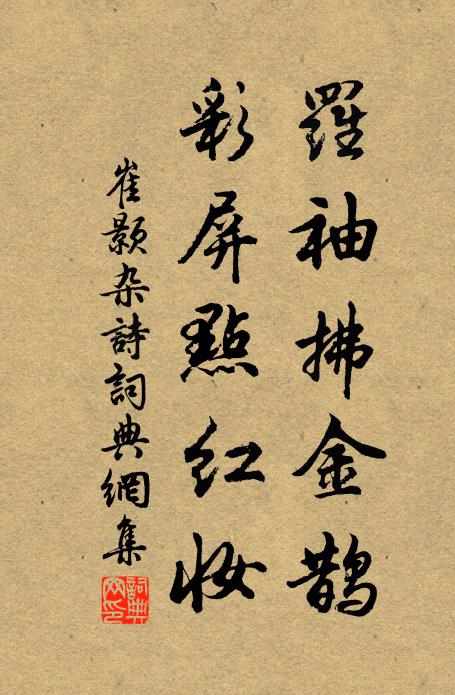 羅袖拂金鵲
彩屏點紅妝
崔颢杂詩詞典網集
詞典網印